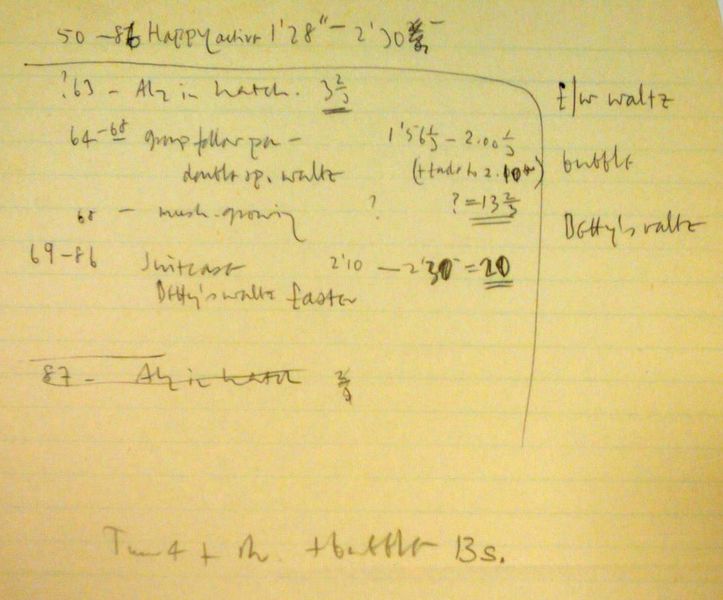 50 - 86 Happy activ 1'28" - 2'30
?63 - Aly in hatch. 3 2/3
64-68 group follow pa -
double sp. waltz
1'56 1/3 - 2.00 1/3
(+ fade to 2.10
68 - mush. growing ? ? = 13 2/3
69-86 Suitcase 2'10 - 2'30 = 20
Betty's waltz faster
87 - Aly in hatch
E/w waltz
bubble
Betty's waltz
+ bubble 13s.